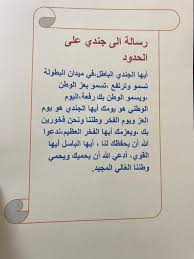 رسالة الى جندي على
الحدود
أيها الجندي الباطل،في ميدان البطولة
تسمو وترتفع ،تسمو بعز الوطن
،ويسمو الوطن بك رفعة،اليوم
الوطني هو يومك أيها الجندي هو يوم
العز ويوم الفخر وطننا ونحن فخورين
بك ،وبعزمك أيها الفخر العظيم،ندعوا
الله أن يحفظك لنا ، أيها الباسل أيها
القوي، أدعي الله أن يحميك ويحمي
وطننا الغالي المجيد.